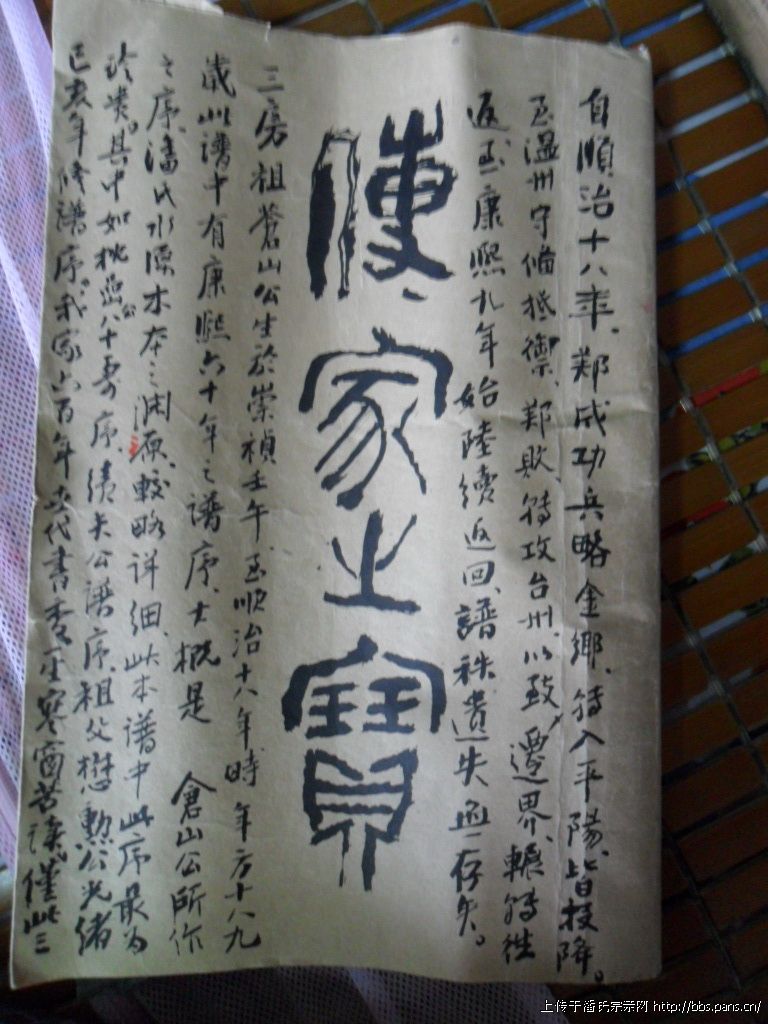 自順治十八年、郑成功兵略金鄉、转入平陽、皆投降。
至温州守備抵禦、郑敗、转攻台州、以致遷界、輾转往
返至康熙九年始陸續返回、譜秩遺失無存矣。
傳家之寶
三房祖蒼山公生於崇禎壬午、至順治十八年時年方十八九
歲此譜中有康熙六十年之譜序、大概是 倉山公所作
之序、潘氏水源木本之渊源、較略详细、此本譜中此序最为
珍貴。其中如 公八十寿序、 公譜序、祖父懋勲公光緒
己亥年修譜序。我家六百年 代書香 寒窗苦读、僅此三
上传于潘氏宗亲网 http://bbs.pans.cn/